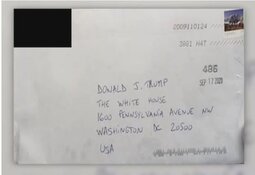 0009110124
3001 HAT
486
SEP 17 2020
DONALD J. TRUMP
THE WHITE HOUSE
1600 PENNSYLVANIA AVENUE NW
WASHINGTON DC 20500
USA